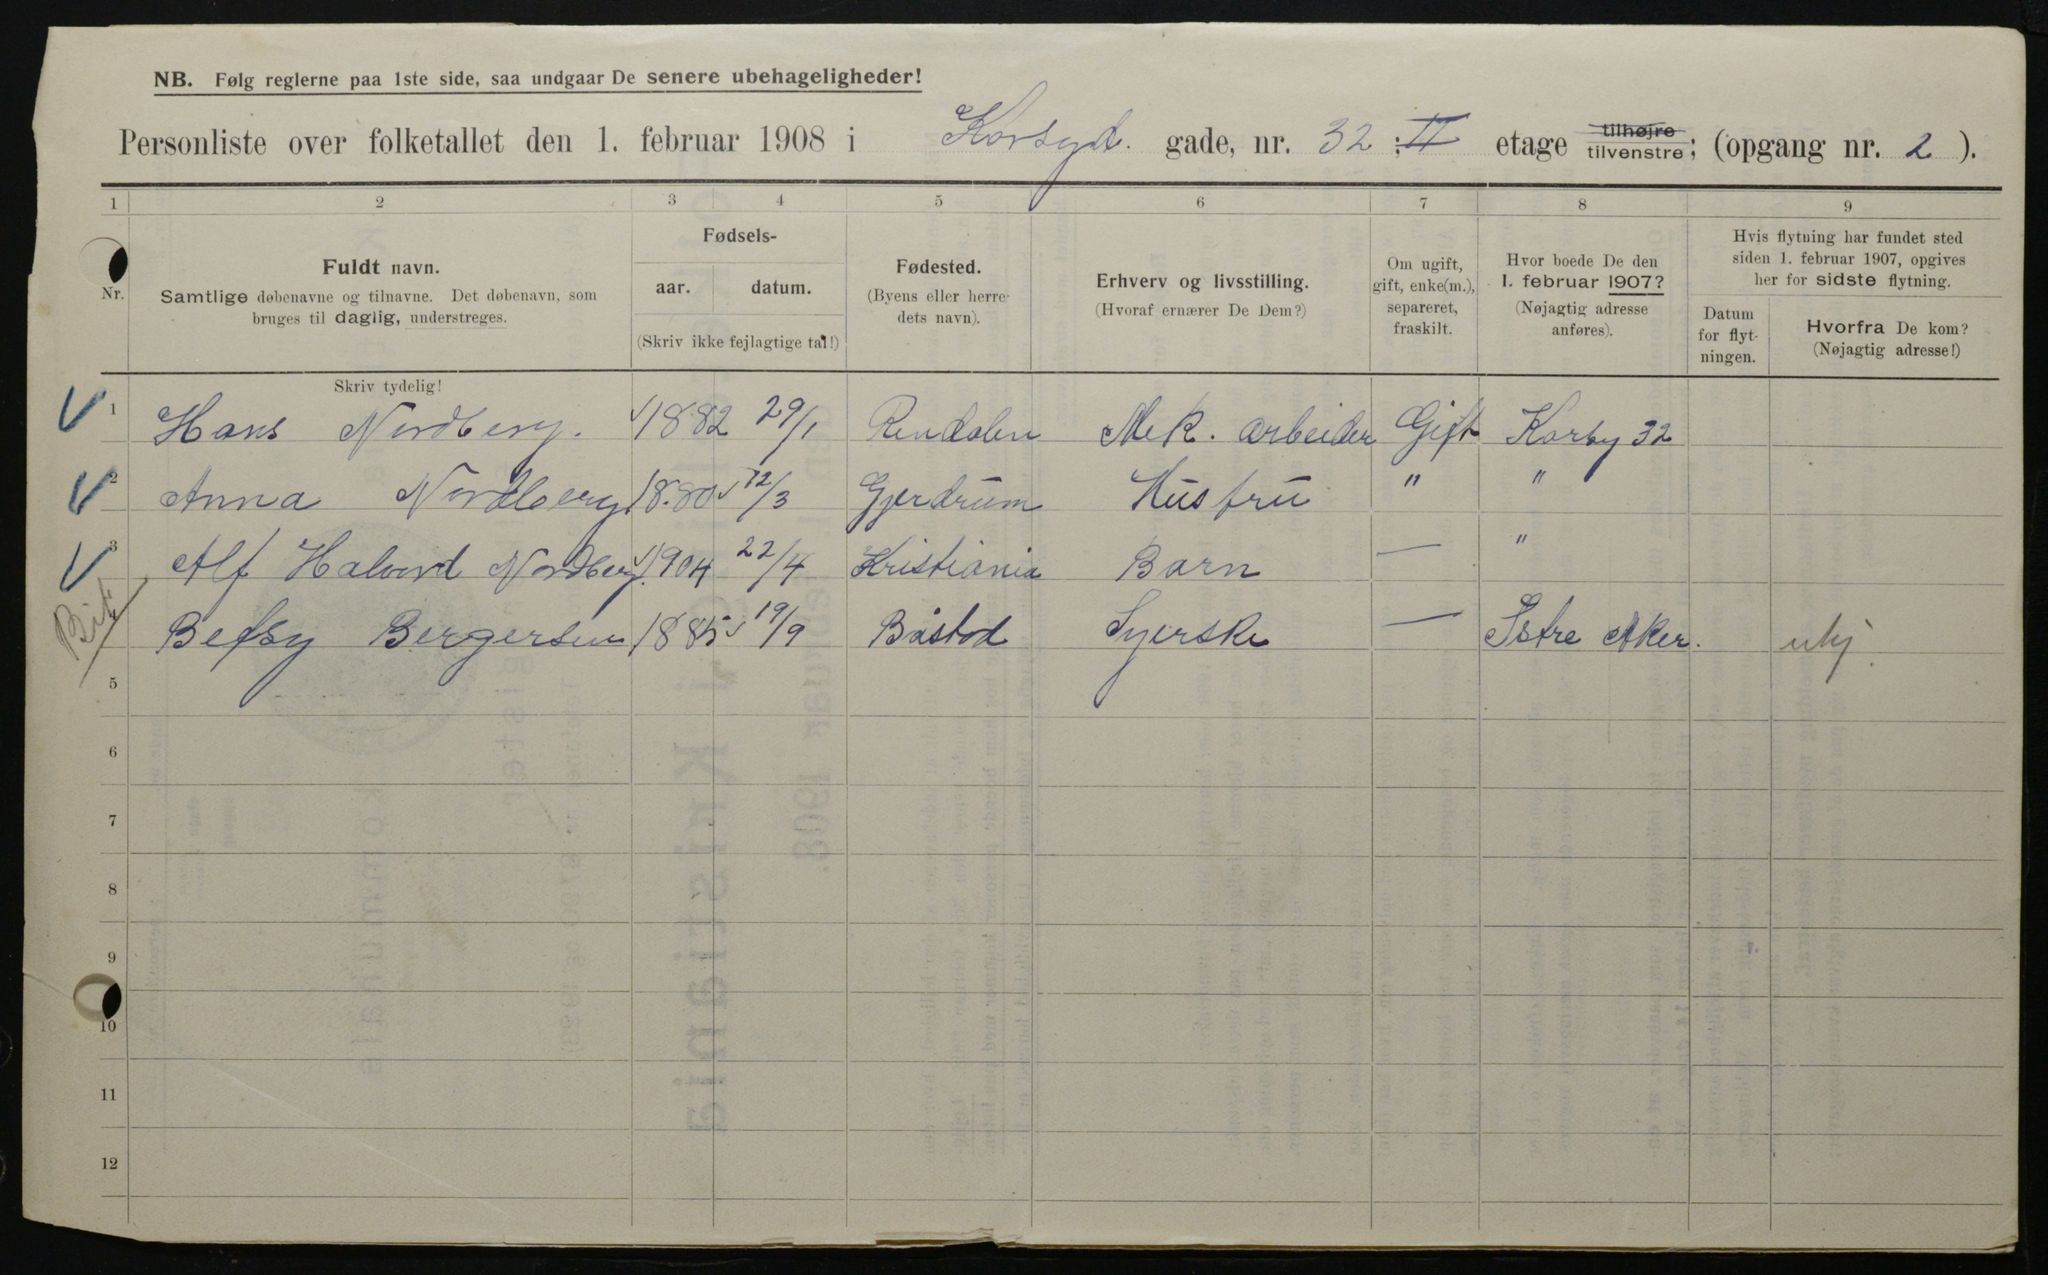 NB. Følg reglerne paa 1ste side, saa undgaar De senere ubehageligheder!
Personliste over folketallet den 1. februar 1908 i Korsgd. gade, nr. 32; II etage tilhøjre tilvenstre; (opgang nr. 2).
1 2 3 4 5 6 7 8 9
Nr.
Fuldt navn.
Samtlige døbenavne og tilnavne. Det døbenavn, som
bruges til daglig, understreges.
Skriv tydelig!
Fødsels-
aar. datum.
(Skriv ikke fejlagtige tal!)
Fødested.
(Byens eller herre-
dets navn).
Erhverv og livsstilling.
(Hvoraf ernærer De Dem?)
Om ugift,
gift, enke(m.),
separeret,
fraskilt.
Hvor boede De den
1. februar 1907?
(Nøjagtig adresse
anføres).
Hvis flytning har fundet sted
siden 1. februar 1907, opgives
her for sidste flytning.
Datum
for flyt-
ningen.
Hvorfra De kom?
(Nøjagtig adresse!)
1 Hans Nordberg. 1882 29/1 Rendalen Mek. arbeider Gift Korsg 32
2 Anna Nordberg 1880 12/3 Gjerdrum Hustru " "
3 Alf Halvord Nordberg. 1904 22/4 Kristiania Barn — "
Betsy Bergersen 1885 19/9 Båstad Syerske — Østre Aker.
5
6
7
8
9
10
11
12